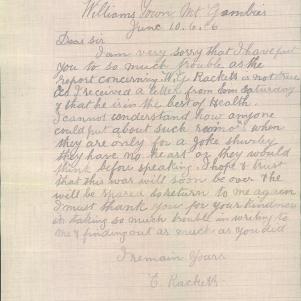 Williams Town Mt Gambier
June 10.6.16
Dear sir
I am very sorry that I have put
you to so much trouble as the
report concerning W.G Rackett is not true
as I received a letter from him Saturday
& that he is in the best of Health.
I cannot understand how anyone
could put about such reamors when
they are only for a Joke shurley
they have no heart or they would
think before speaking. I hope & trust
that this war will soon be over & he
will be spared to return to me again
I must thank you for your kindness
in taking so much trouble in writing to
me & finding out as much as you did
I remain Yours
E Rackett